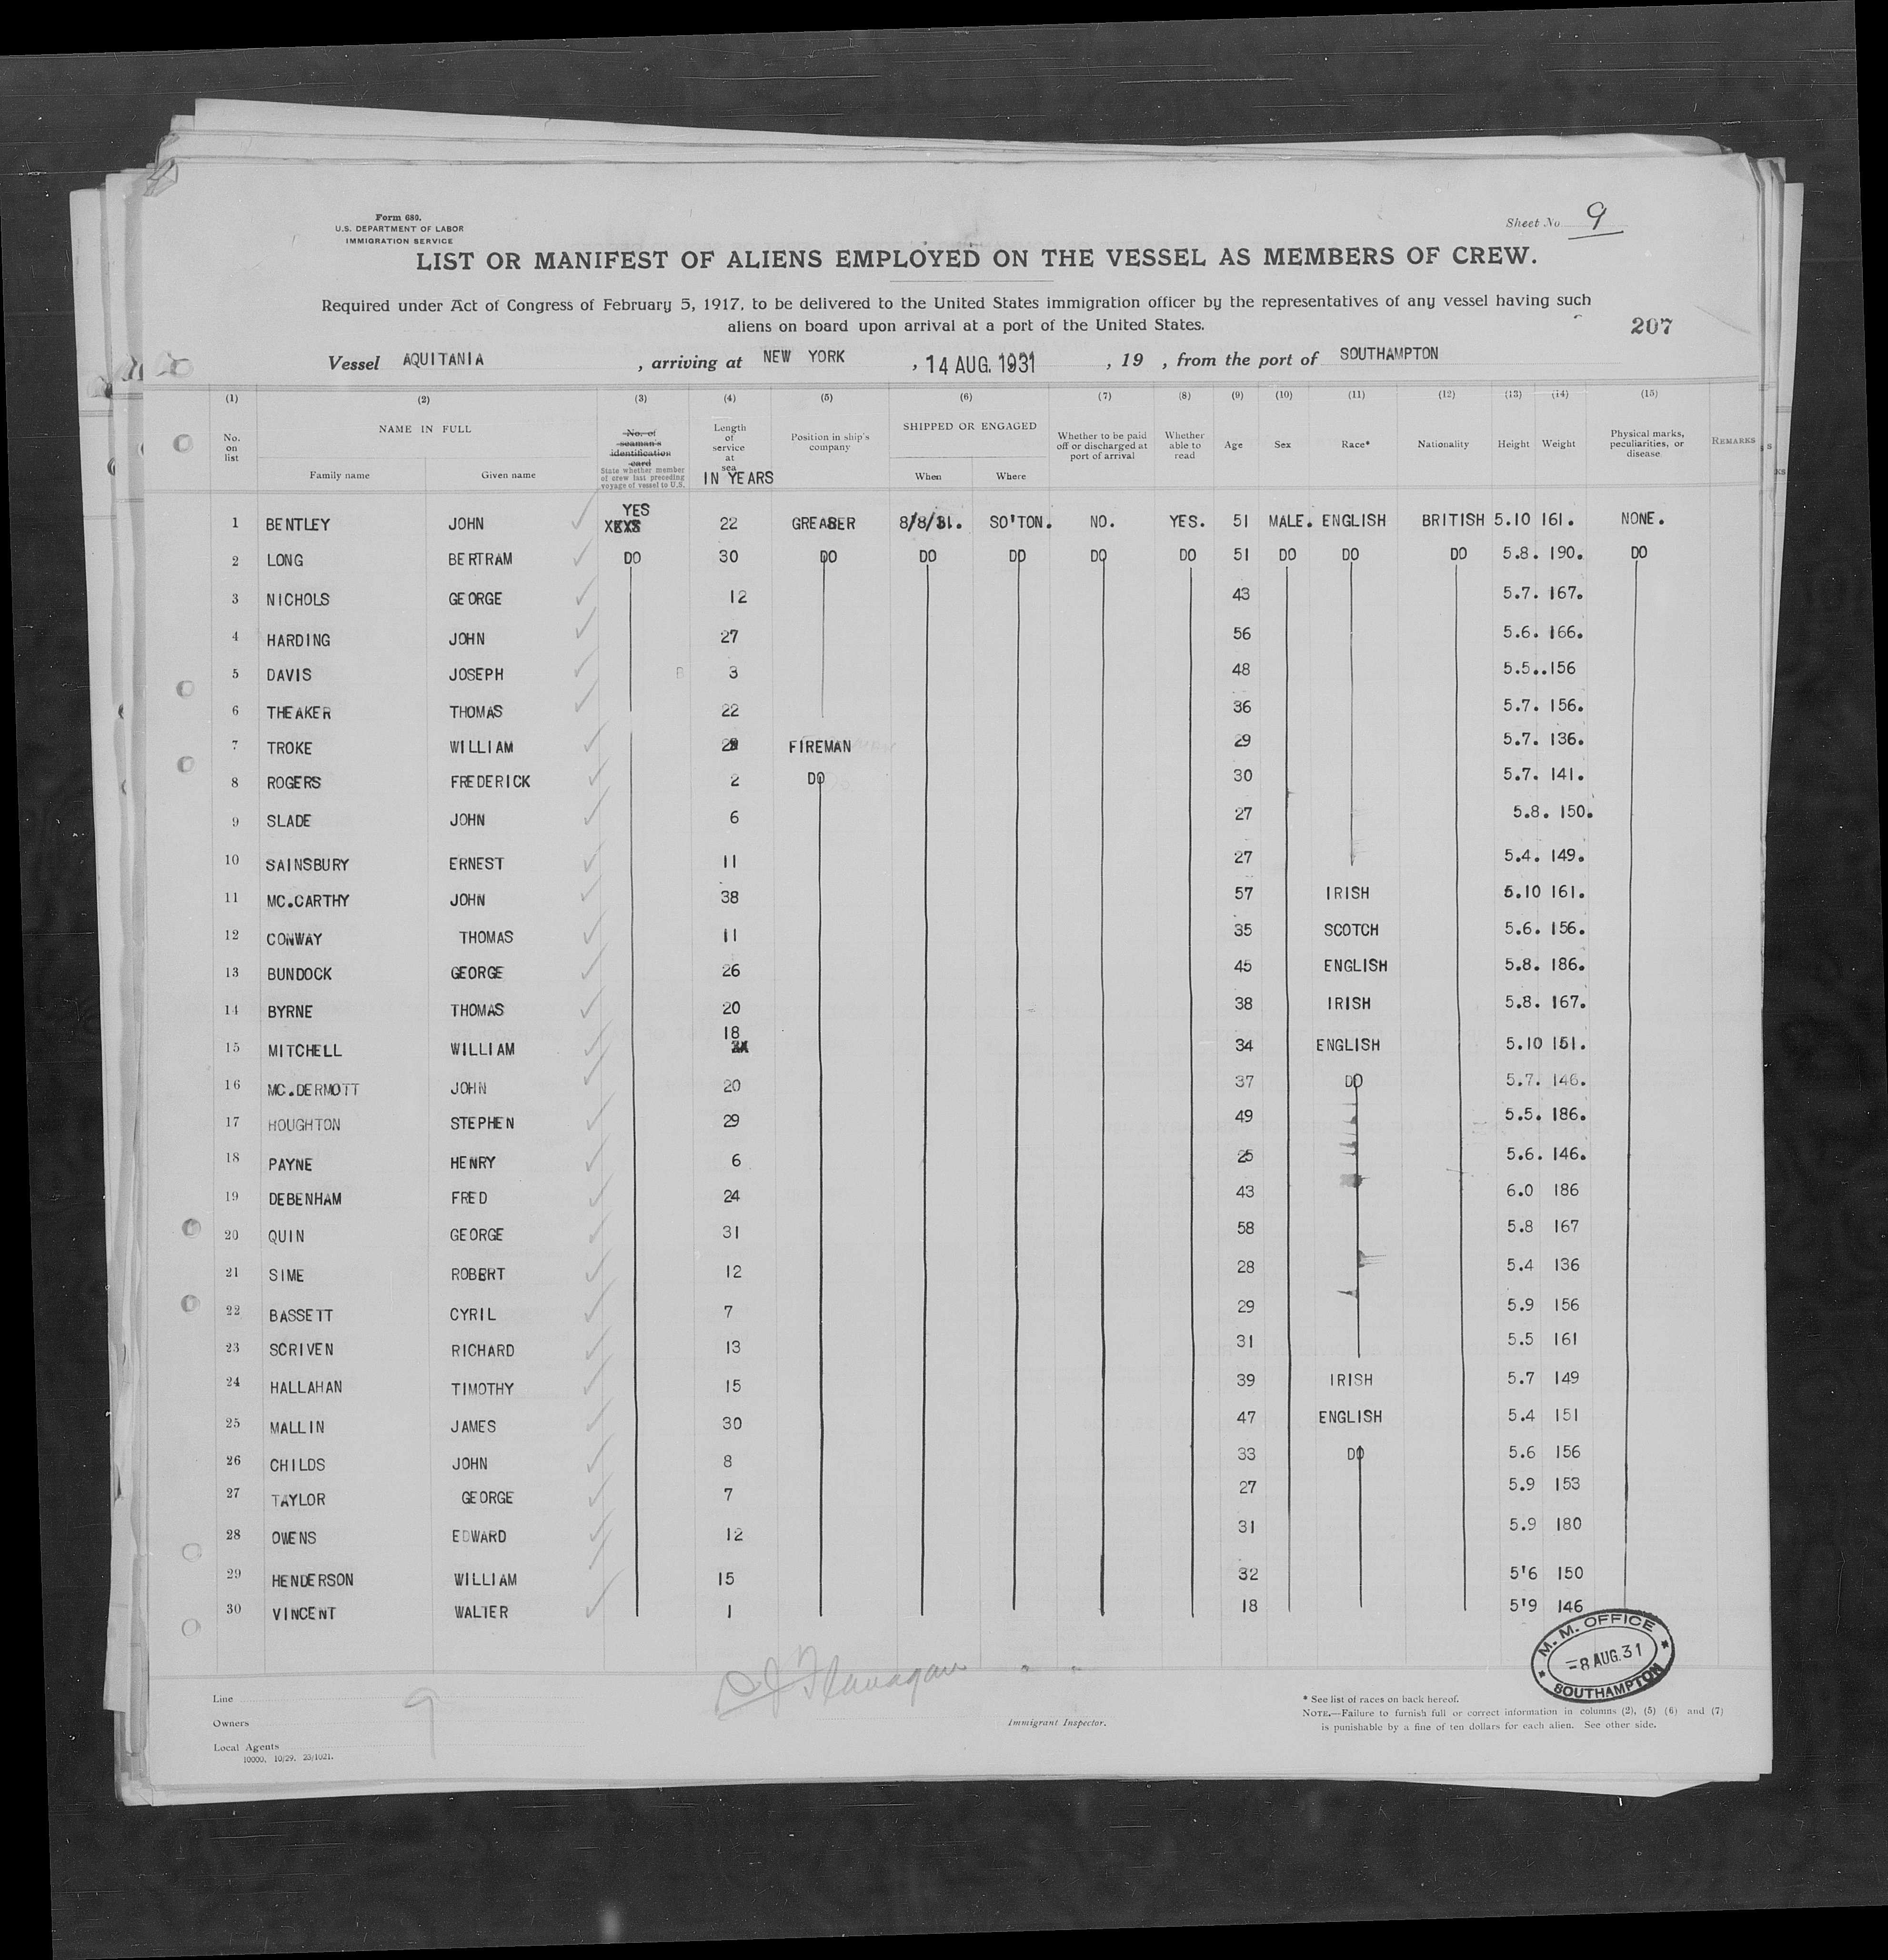 Form 680.
U.S. DEPARTMENT OF LABOR
IMMIGRATION SERVICE
Sheet No 9
LIST OR MANIFEST OF ALIENS EMPLOYED ON THE VESSEL AS MEMBERS OF CREW.
Required under Act of Congress of February 5, 1917, to be delivered to the United States immigration officer by the representatives of any vessel having such
aliens on board upon arrival at a port of the United States.
207
Vessel AQUITANIA , arriving at NEW YORK , 14 AUG. 1931 , 19 , from the port of SOUTHAMPTON
(1) (2) (3) (4) (5) (6) (7) (8) (9) (10) (11) (12) (13) (14) (15)
No. on list
NAME IN FULL
Family name Given name
No. of seaman's identification card
State whether member of crew last preceding voyage of vessel to U.S.
Length of service at sea IN YEARS
Position in ship's company
SHIPPED OR ENGAGED
When Where
Whether to be paid off or discharged at port of arrival
Whether able to read
Age Sex Race* Nationality Height Weight
Physical marks, peculiarities, or disease
REMARKS
YES
1 BENTLEY JOHN 22 GREASER 8/8/31. SO'TON. NO. YES. 51 MALE. ENGLISH BRITISH 5.10 161. NONE.
2 LONG BERTRAM DO 30 DO DO DO DO DO 51 DO DO DO 5.8. 190. DO
3 NICHOLS GEORGE 12 43 5.7. 167.
4 HARDING JOHN 27 56 5.6. 166.
5 DAVIS JOSEPH 3 48 5.5..156
6 THEAKER THOMAS 22 36 5.7. 156.
7 TROKE WILLIAM FIREMAN 29 5.7. 136.
8 ROGERS FREDERICK 2 DO 30 5.7. 141.
9 SLADE JOHN 6 27 5.8. 150.
10 SAINSBURY ERNEST 11 27 5.4. 149.
11 MC.CARTHY JOHN 38 57 IRISH 5.10 161.
12 CONWAY THOMAS 11 35 SCOTCH 5.6. 156.
13 BUNDOCK GEORGE 26 45 ENGLISH 5.8. 186.
14 BYRNE THOMAS 20 38 IRISH 5.8. 167.
15 MITCHELL WILLIAM 18 34 ENGLISH 5.10 151.
16 MC.DERMOTT JOHN 20 37 DO 5.7. 146.
17 HOUGHTON STEPHEN 29 49 5.5. 186.
18 PAYNE HENRY 6 25 5.6. 146.
19 DEBENHAM FRED 24 43 6.0 186
20 QUIN GEORGE 31 58 5.8 167
21 SIME ROBERT 12 28 5.4 136
22 BASSETT CYRIL 7 29 5.9 156
23 SCRIVEN RICHARD 13 31 5.5 161
24 HALLAHAN TIMOTHY 15 39 IRISH 5.7 149
25 MALLIN JAMES 30 47 ENGLISH 5.4 151
26 CHILDS JOHN 8 33 DO 5.6 156
27 TAYLOR GEORGE 7 27 5.9 153
28 OWENS EDWARD 12 31 5.9 180
29 HENDERSON WILLIAM 15 32 5'6 150
30 VINCENT WALTER 1 18 5'9 146
M. M. OFFICE
-8 AUG.31
SOUTHAMPTON
Flanagan
9
Line
Owners
Local Agents
10000. 10/29. 23/1021.
Immigrant Inspector.
* See list of races on back hereof.
NOTE.—Failure to furnish full or correct information in columns (2), (5) (6) and (7)
is punishable by a fine of ten dollars for each alien. See other side.